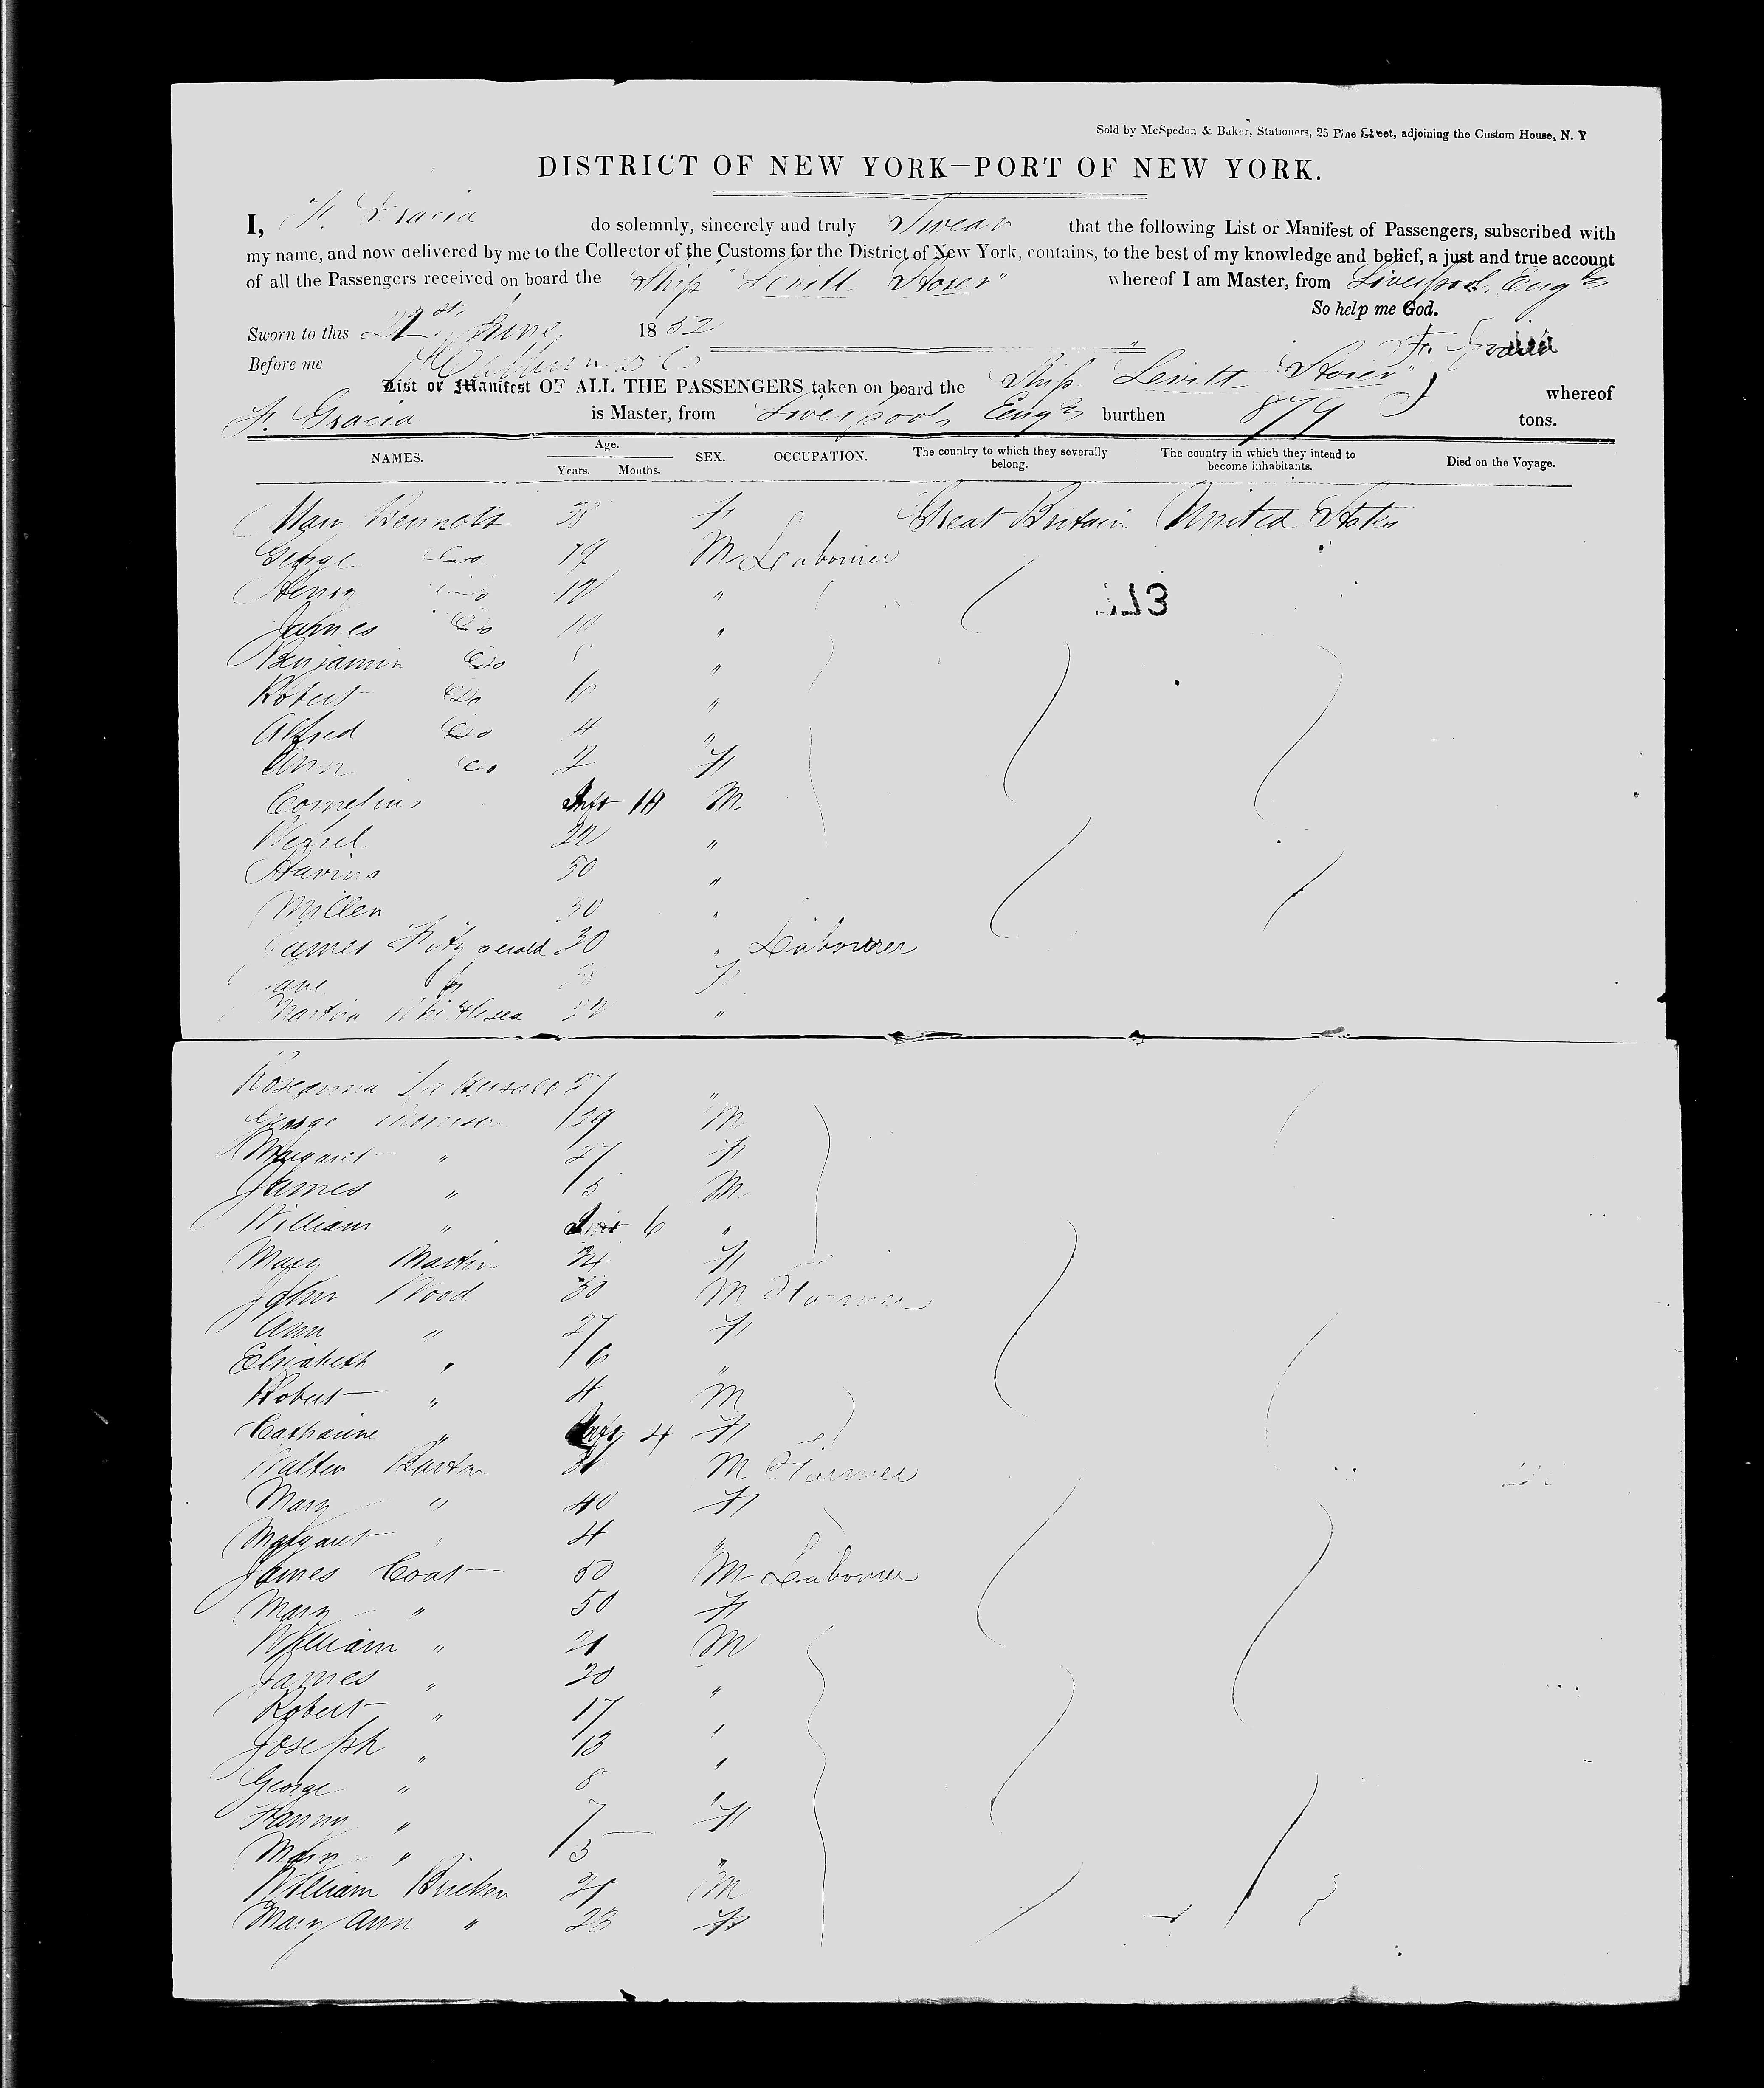 Sold by McSpedon & Baker, Stationers, 25 Pine Street, adjoining the Custom House, N. Y
DISTRICT OF NEW YORK—PORT OF NEW YORK.
I, F. Gracia do solemnly, sincerely and truly Swear that the following List or Manifest of Passengers, subscribed with
my name, and now delivered by me to the Collector of the Customs for the District of New York, contains, to the best of my knowledge and belief, a just and true account
of all the Passengers received on board the Ship "Levitt Storer" whereof I am Master, from Liverpool, Engd
So help me God.
Sworn to this 21st June, 1852
Before me
List or Manifest OF ALL THE PASSENGERS taken on board the Ship Levitt Storer" whereof
F. Gracia is Master, from Liverpool, Engd burthen 879 tons.
NAMES. Age. Years. Months. SEX. OCCUPATION. The country to which they severally belong. The country in which they intend to become inhabitants. Died on the Voyage.
Mary Bennett 38 F Great Britain United States
George Do M Labourer
Henry Do 12 "
James Do 10 "
Benjamin Do "
Robert Do "
Alfred Do 4 "
Ann Do 2 F
Cornelius Inft 10 M
22 "
50 "
Miller "
James Fitzgerald 30 " Labourer
Jane F
Martha "
Roseanna 27 "
George 29 M
Margaret " 27 F
James " 5 M
William " Inft 6 "
Mary Martin 24 F
John Wood 30 M Farmer
Ann " 27 F
Elizabeth " 6 "
Robert " 4 M
Catharine " Inft 4 F
Walter Barton M Farmer
Mary " 40 F
Margaret " 4 "
James Coat 50 M Labourer
Mary " 50 F
William " 21 M
James " 20 "
Robert " 17 "
Joseph " 13 "
George " 8 "
Fanny " 7 F
Mary " 5 "
William 21 M
Mary Ann " 23 F